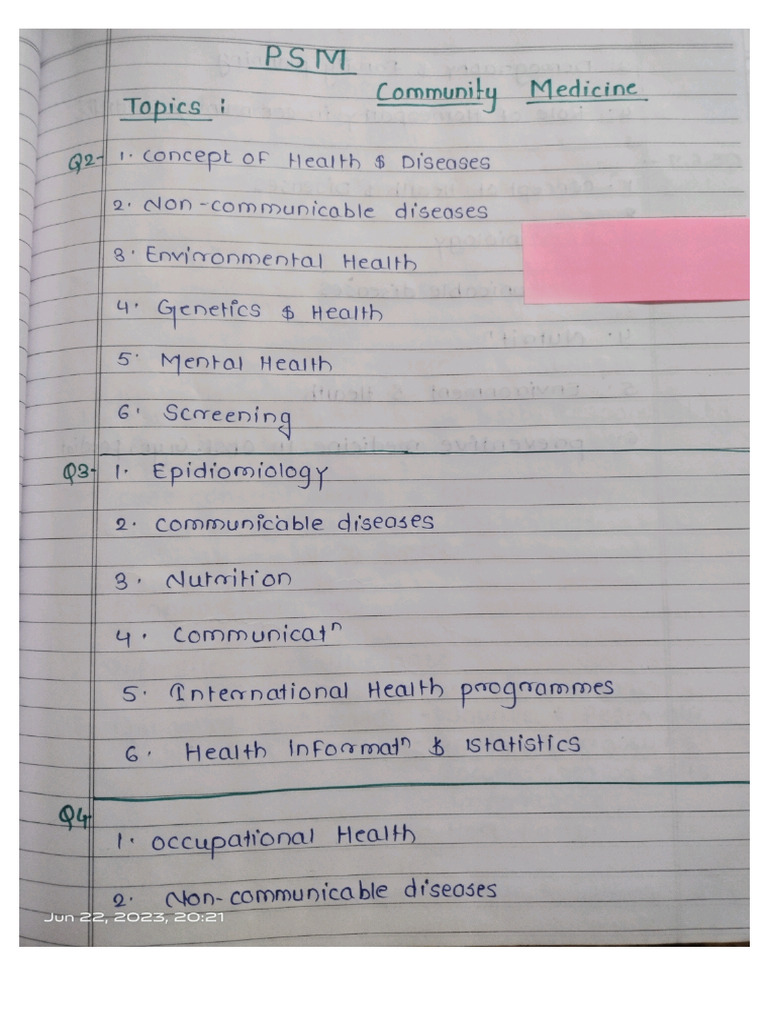 PSM
Community Medicine
Topics :
Q2- 1. Concept of Health & Diseases
2. Non-communicable diseases
3. Environmental Health
4. Genetics & Health
5. Mental Health
6. Screening
Q3- 1. Epidiomiology
2. Communicable diseases
3. Nutrition
4. Communicatⁿ
5. International Health programmes
6. Health Informatⁿ & Statistics
Q4
1. Occupational Health
2. Non-communicable diseases
Jun 22, 2023, 20:21